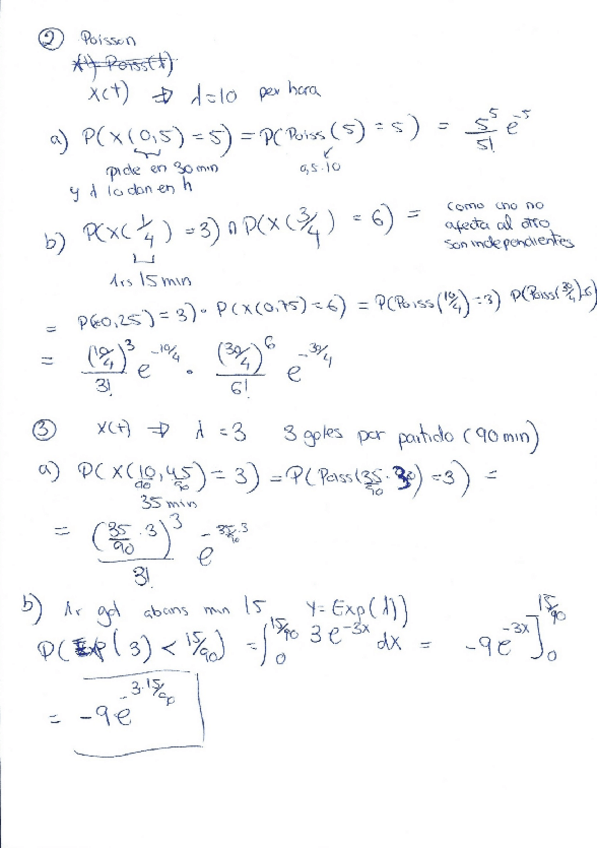 ② Poisson
X(t) ⇒ λ=10 per hora
a) P(X(0,5) = 5) = P(Poiss(5) = 5) = 5^5/5! e^-5
pide en 30 min
0,5·10
y λ lo dan en h
b) P(X(1/4) = 3) ∩ P(X(3/4) = 6) = como uno no
afecta al otro
son independientes
1rs 15 min
= P(0,25) = 3) · P(X(0,75) = 6) = P(Poiss(10/4) = 3) P(Poiss(30/4) = 6)
= (10/4)^3/3! e^-10/4 · (30/4)^6/6! e^-30/4
③ X(t) ⇒ λ = 3 3 goles por partido (90 min)
a) P(X(10/90, 45/90) = 3) = P(Poiss(35/90 · 3) = 3) =
35 min
= (35/90 · 3)^3/3! e^-35/90·3
b) 1r gol abans min 15 Y = Exp(λ))
P(Exp(3) < 15/90) = ∫_0^15/90 3e^-3x dx = -9e^-3x]_0^15/90
= -9e^-3·15/90